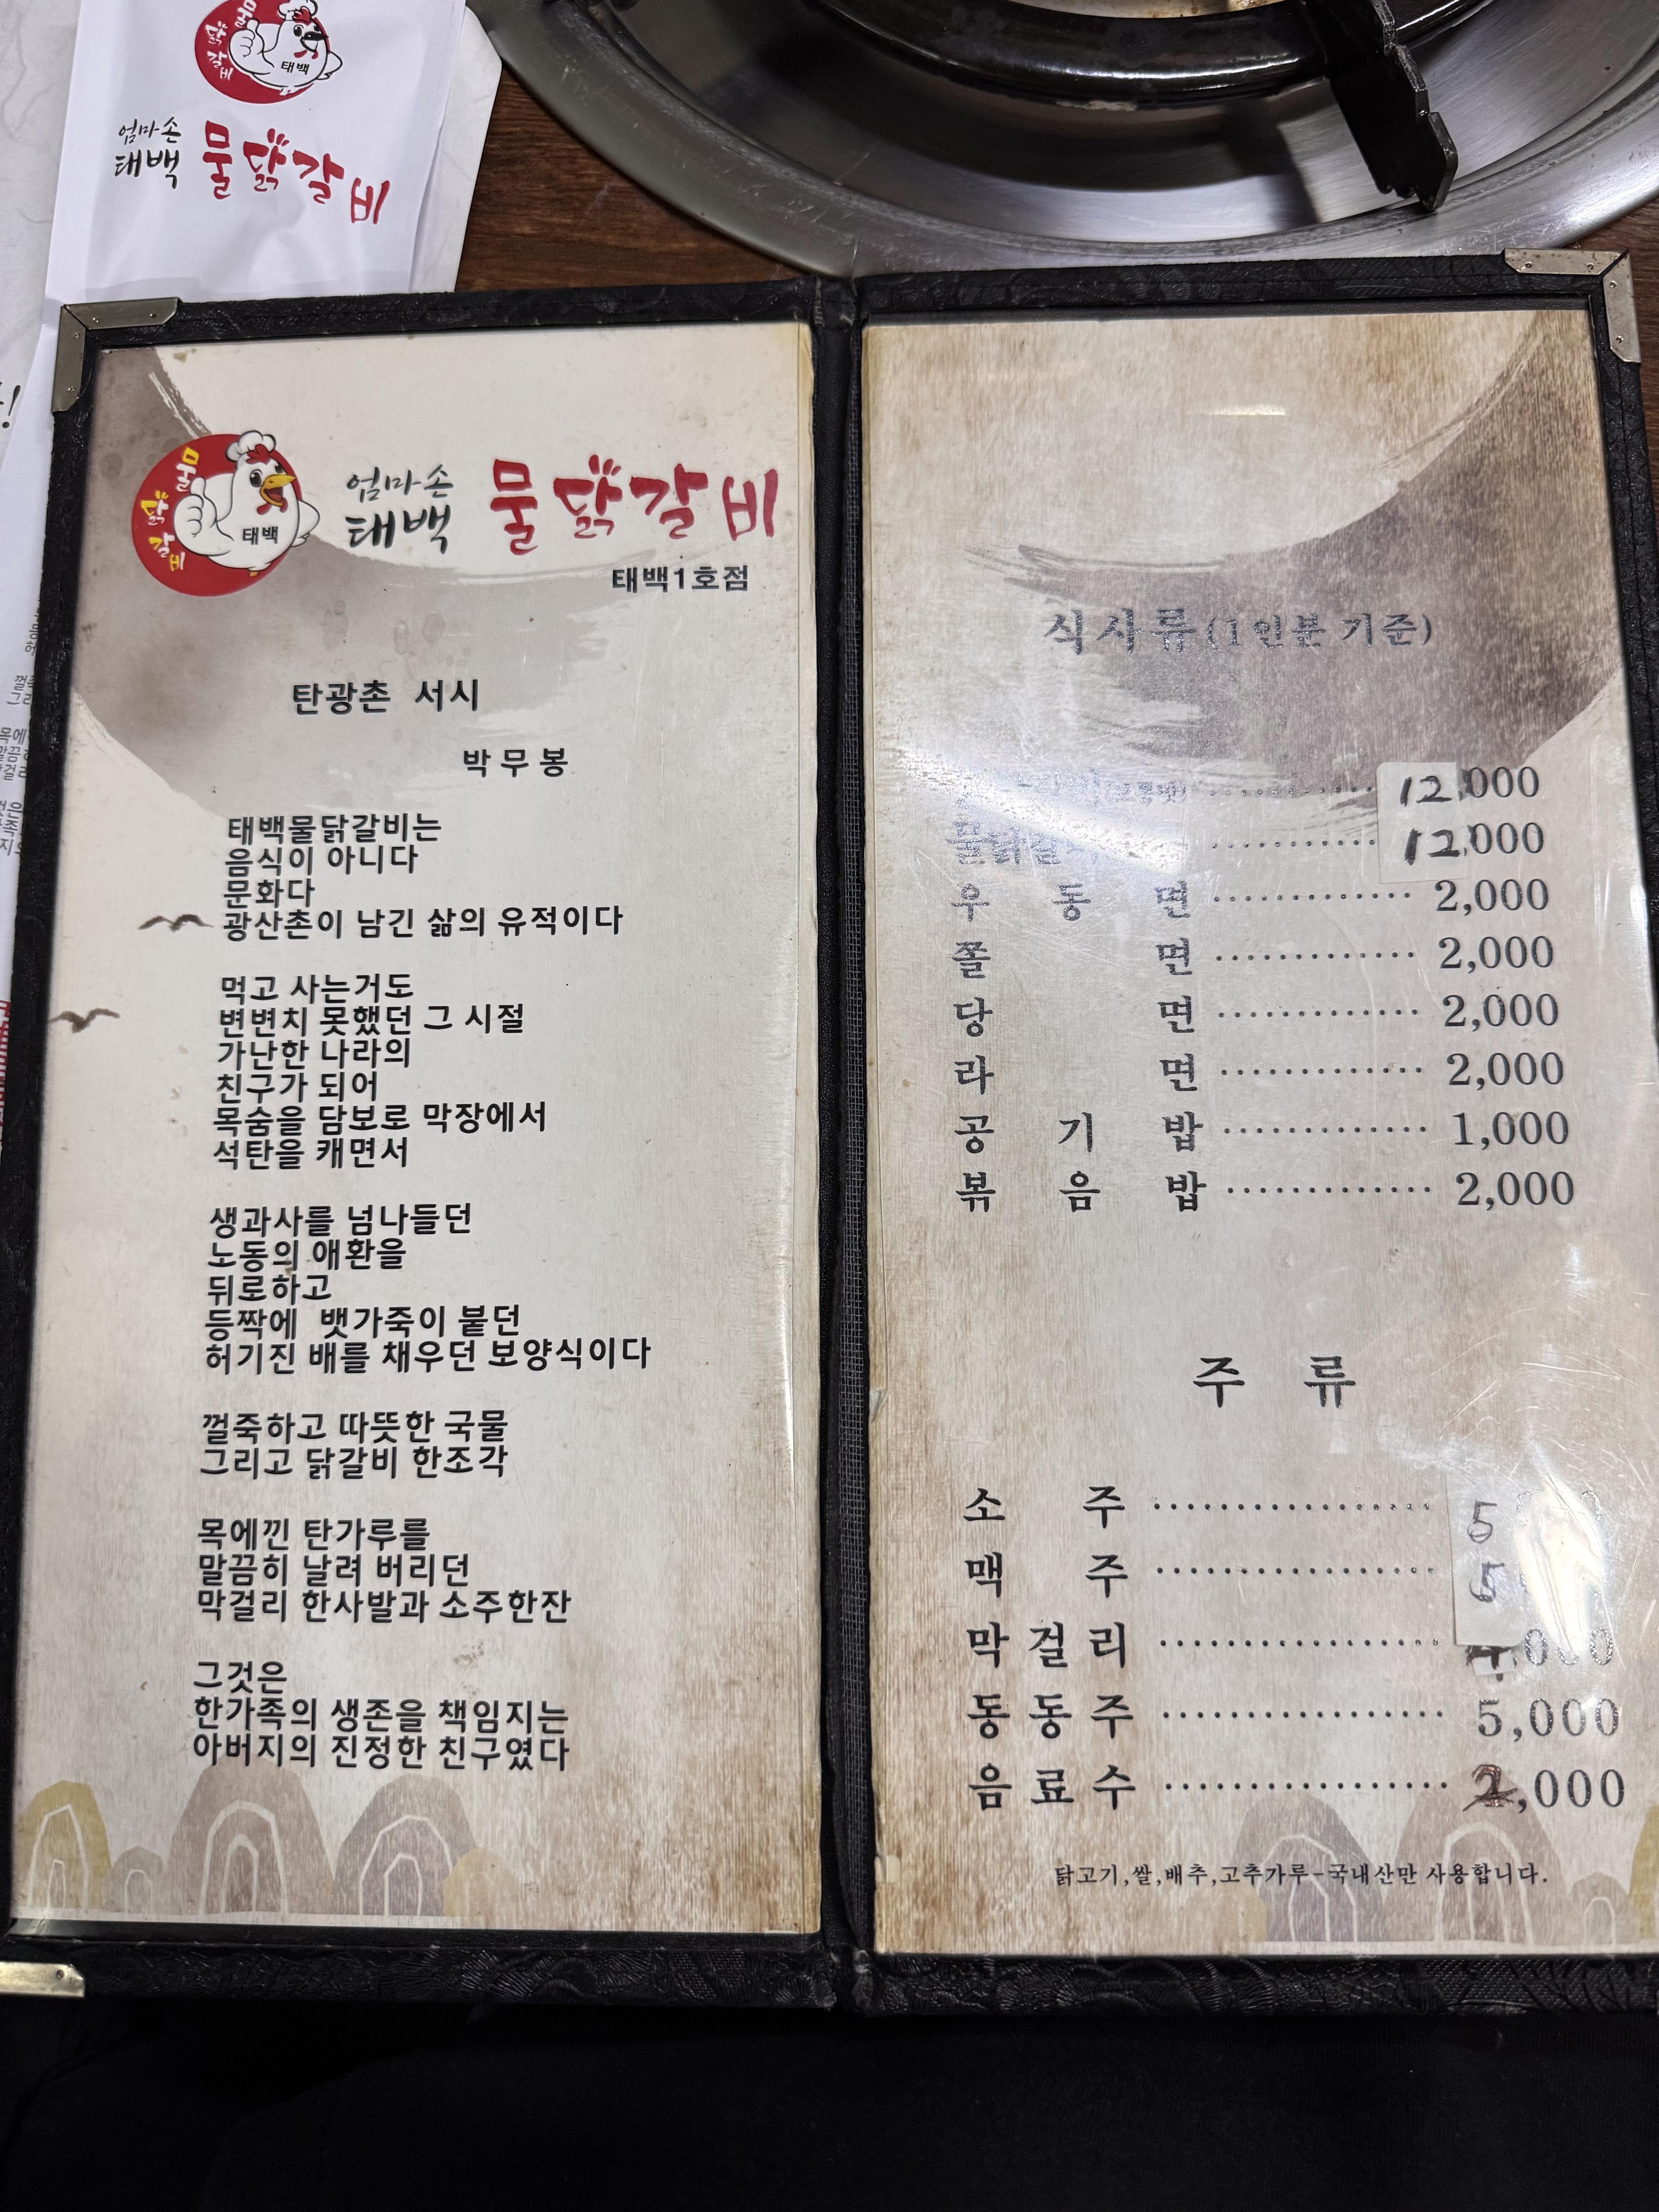 물닭갈비
태백
엄마손
태백 물닭갈비
물닭갈비
태백
엄마손
태백 물닭갈비
태백1호점
탄광촌 서시
박무봉
태백물닭갈비는
음식이 아니다
문화다
광산촌이 남긴 삶의 유적이다
먹고 사는거도
변변치 못했던 그 시절
가난한 나라의
친구가 되어
목숨을 담보로 막장에서
석탄을 캐면서
생과사를 넘나들던
노동의 애환을
뒤로하고
등짝에 뱃가죽이 붙던
허기진 배를 채우던 보양식이다
껄죽하고 따뜻한 국물
그리고 닭갈비 한조각
목에낀 탄가루를
말끔히 날려 버리던
막걸리 한사발과 소주한잔
그것은
한가족의 생존을 책임지는
아버지의 진정한 친구였다
식사류(1인분 기준)
12,000
물닭갈비 12,000
우동면 2,000
쫄면 2,000
당면 2,000
라면 2,000
공기밥 1,000
볶음밥 2,000
주류
소주 5
맥주 5
막걸리 ,000
동동주 5,000
음료수 2,000
닭고기,쌀,배추,고추가루-국내산만 사용합니다.